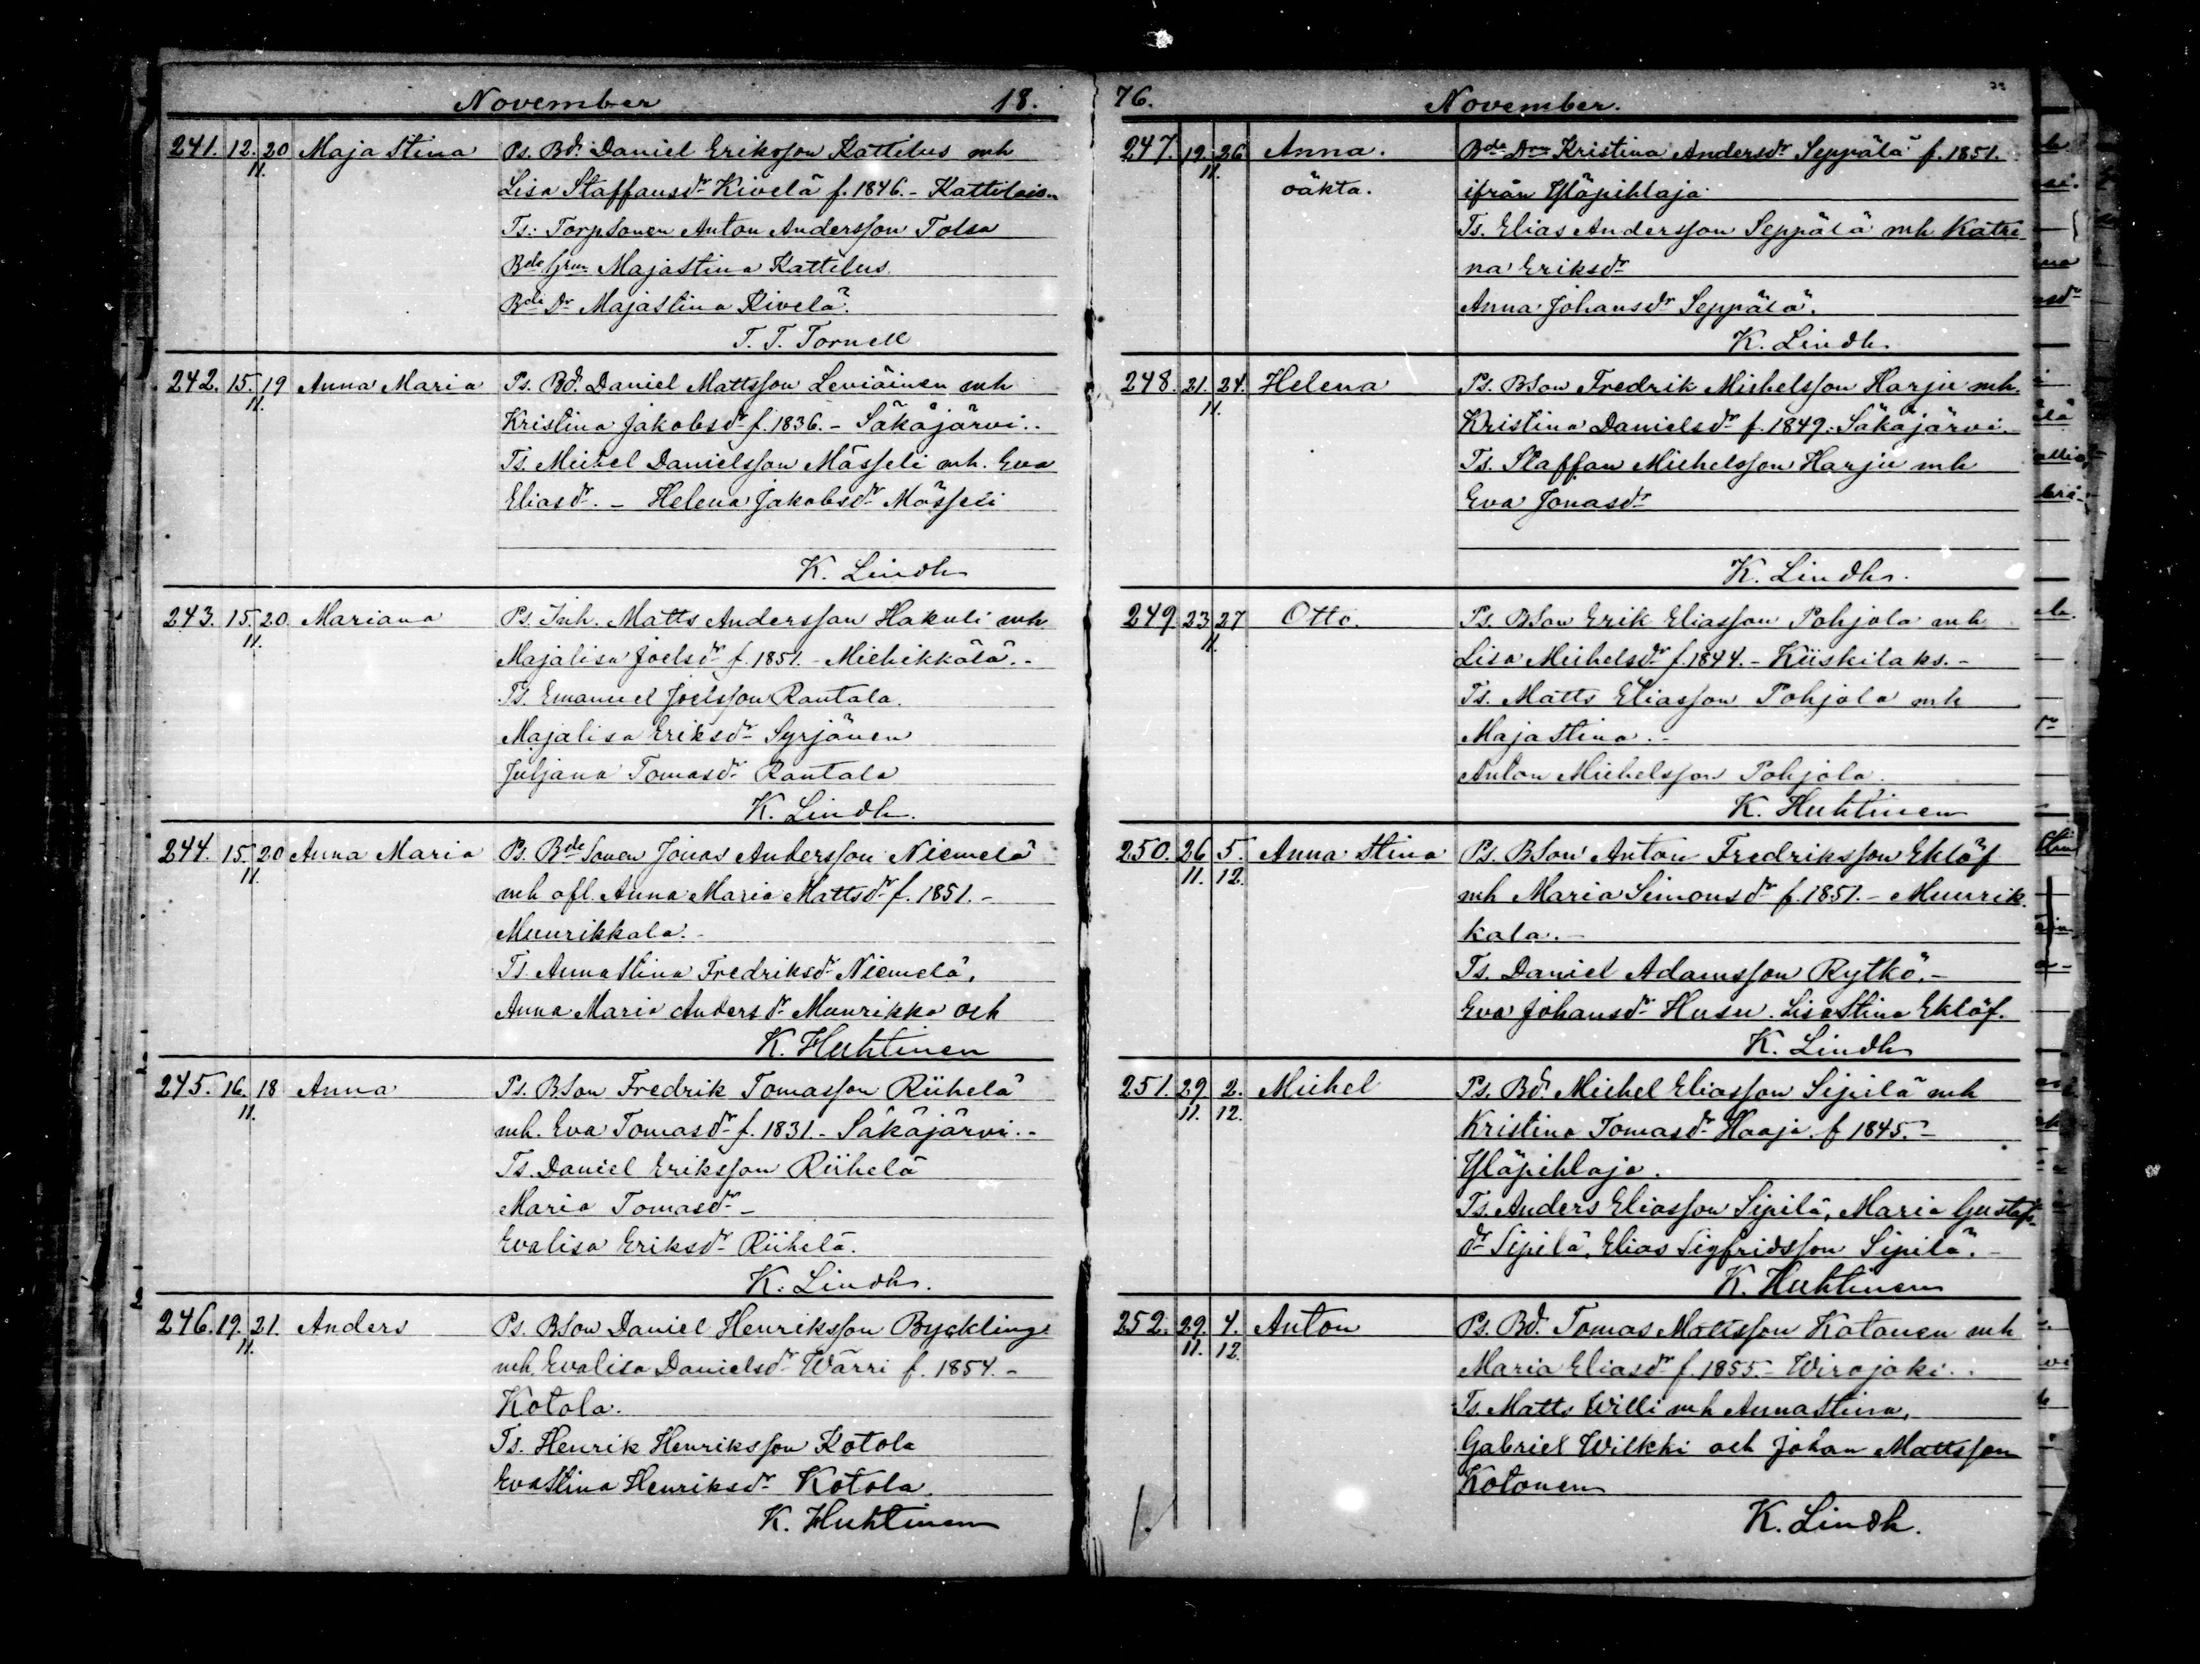 November 18.
241. 12. 20 Maja Stina Ps. Bd. Daniel Eriksson Kattilus mh
11. Lisa Staffansdr Kivelä f. 1846. - Kattilais.
Ts: Torpsonen Anton Andersson Tolsa
Bde Hrun MajaStina Kattilus.
Bde Dr MajaStina Kivelä.
T. T. Tornell
242. 15. 19 Anna Maria Ps. Bd. Daniel Mattsson Leviäinen mh
11. Kristina Jakobsdr f. 1836. - Säkäjärvi. -
Ts. Michel Danielsson Mässeli mh. Eva
Eliasdr. - Helena Jakobsdr Mässeli
K. Lindh
243. 15. 20. Mariana Ps. Inh. Matts Andersson Hakuli mh
11. Majalisa Joelsdr f. 1851. - Miehikkälä. -
Ts. Emanuel Joelsson Rantala.
Majalisa Eriksdr Syrjänen
Juljana Tomasdr Rantala
K. Lindh.
244. 15. 20 Anna Maria Ps. Bde Sonen Jonas Andersson Niemelä
11. mh afl. Anna Maria Mattsdr f. 1851. -
Muurikkala. -
Ts. AnnaStina Fredriksdr Niemelä,
Anna Maria Andersdr Muurikka och
K. Huhtinen
245. 16. 18 Anna Ps. BSon Fredrik Tomasson Riihelä
11. mh. Eva Tomasdr f. 1831. - Säkäjärvi. -
Ts. Daniel Eriksson Riihelä
Maria Tomasdr -
Evalisa Eriksdr Riihelä.
K. Lindh.
246. 19. 21. Anders Ps. BSon Daniel Henriksson Byckling
11. mh. Evalisa Danielsdr Wärri f. 1854. -
Kotola.
Ts. Henrik Henriksson Kotola
EvaStina Henriksdr Kotola.
K. Huhtinen
76. November.
247. 19. 26 Anna. Bde Drn Kristina Andersdr Seppälä f. 1851.
11. oäkta. ifrån Yläpihlaja.
Ts. Elias Andersson Seppälä mh Katri-
na Eriksdr
Anna Johansdr Seppälä.
K. Lindh.
248. 21. 24. Helena Ps. BSon Fredrik Michelsson Harju mh.
11. Kristina Danielsdr f. 1849. Säkäjärvi. -
Ts. Staffan Michelsson Harju mh
Eva Jonasdr
K. Lindh.
249. 23 27 Otto. Ps. BSon Erik Eliasson Pohjola mh
11. Lisa Michelsdr f. 1844. - Kiiskilaks. -
Ts. Matts Eliasson Pohjola mh
MajaStina. -
Anton Michelsson Pohjola.
K. Huhtinen
250. 26 5. Anna Stina Ps. BSon Anton Fredriksson Eklöf
11. 12. mh Maria Simonsdr f. 1851. - Muurik-
kala. -
Ts. Daniel Adamsson Rytkö. -
Eva Johansdr Husu. LisaStina Eklöf.
K. Lindh
251. 29 2. Michel Ps. Bd. Michel Eliasson Sipilä mh
11. 12. Kristina Tomasdr Haaja. f 1845. -
Yläpihlaja.
Ts. Anders Eliasson Sipilä, Maria Gustafs-
dr Sipilä, Elias Sigfridsson Sipilä. -
K. Huhtinen
252. 29. 4. Anton Ps. Bd. Tomas Mattsson Kotonen mh
11. 12. Maria Eliasdr f. 1855. - Wirojoki. -
Ts. Matts Willi mh AnnaStina,
Gabriel Wilkki och Johan Mattsson
Kotonen
K. Lindh.